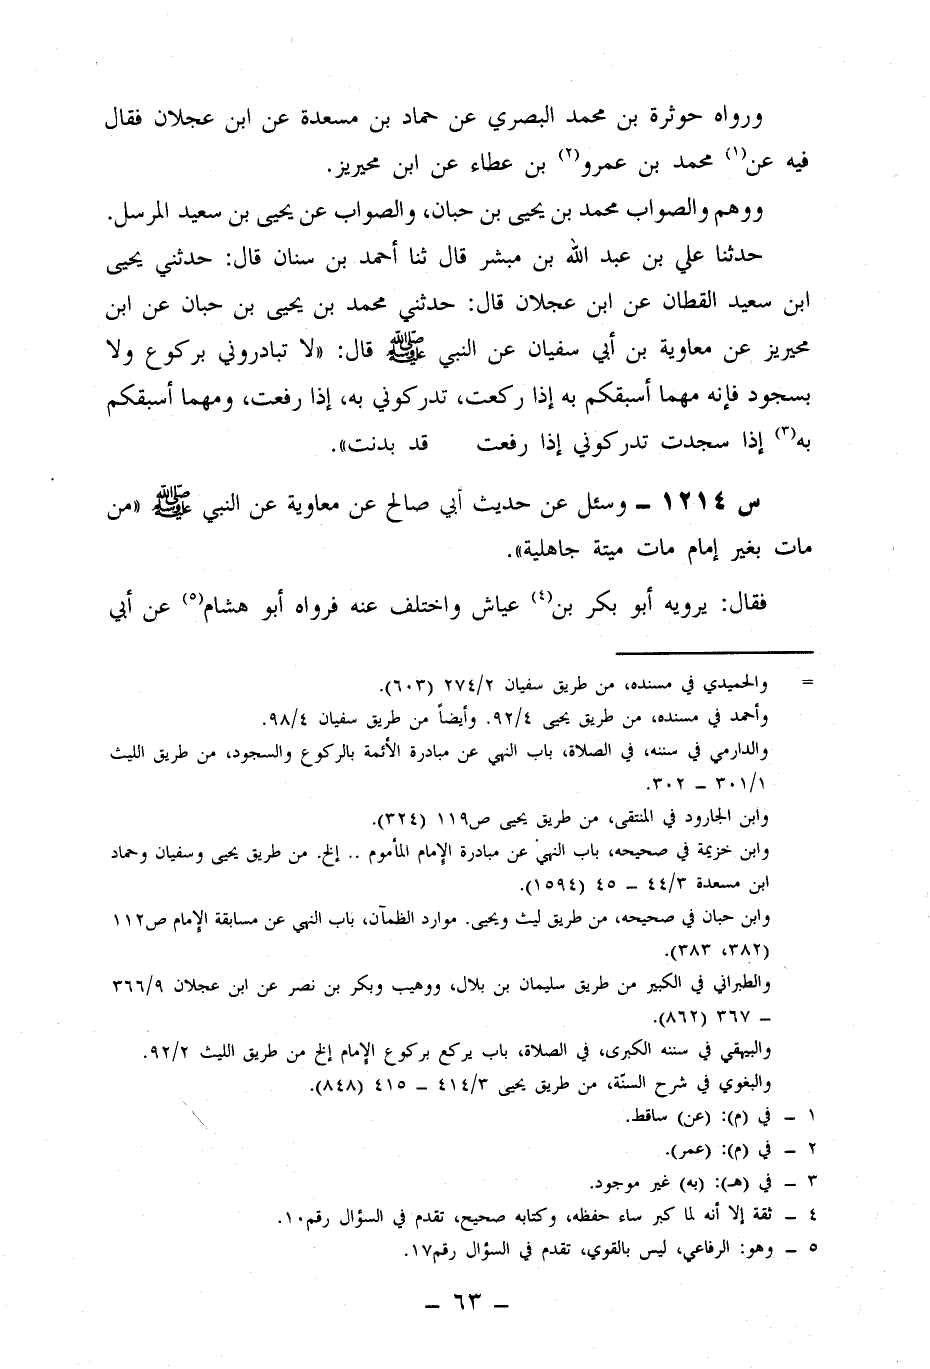 ورواه حوثرة بن محمد البصري عن حماد بن مسعدة عن ابن عجلان فقال
فيه عن(١) محمد بن عمرو(٢) بن عطاء عن ابن محيريز.
ووهم والصواب محمد بن يحيى بن حبان، والصواب عن يحيى بن سعيد المرسل.
حدثنا علي بن عبد الله بن مبشر قال ثنا أحمد بن سنان قال: حدثني يحيى
ابن سعيد القطان عن ابن عجلان قال: حدثني محمد بن يحيى بن حبان عن ابن
محيريز عن معاوية بن أبي سفيان عن النبي ﷺ قال: «لا تبادروني بركوع ولا
بسجود فإنه مهما أسبقكم به إذا ركعت، تدركوني به، إذا رفعت، ومهما أسبقكم
به(٣) إذا سجدت تدركوني إذا رفعت قد بدنت».
س ١٢١٤ ـ وسئل عن حديث أبي صالح عن معاوية عن النبي ﷺ «من
مات بغير إمام مات ميتة جاهلية».
فقال: يرويه أبو بكر بن(٤) عياش واختلف عنه فرواه أبو هشام(٥) عن أبي
= والحميدي في مسنده، من طريق سفيان ٢/‏٢٧٤ (٦٠٣).
وأحمد في مسنده، من طريق يحيى ٤/‏٩٢. وأيضاً من طريق سفيان ٤/‏٩٨.
والدارمي في سننه، في الصلاة، باب النهي عن مبادرة الأئمة بالركوع والسجود، من طريق الليث
١/‏٣٠١ ـ ٣٠٢.
وابن الجارود في المنتقى، من طريق يحيى ص١١٩ (٣٢٤).
وابن خزيمة في صحيحه، باب النهي عن مبادرة الإمام المأموم .. إلخ. من طريق يحيى وسفيان وحماد
ابن مسعدة ٣/‏٤٤ ـ ٤٥ (١٥٩٤).
وابن حبان في صحيحه، من طريق ليث ويحيى. موارد الظمآن، باب النهي عن مسابقة الإمام ص١١٢
(٣٨٢، ٣٨٣).
والطبراني في الكبير من طريق سليمان بن بلال، ووهيب وبكر بن نصر عن ابن عجلان ٩/‏٣٦٦
ـ ٣٦٧ (٨٦٢).
والبيهقي في سننه الكبرى، في الصلاة، باب يركع بركوع الإمام إلخ من طريق الليث ٢/‏٩٢.
والبغوي في شرح السنّة، من طريق يحيى ٣/‏٤١٤ ـ ٤١٥ (٨٤٨).
١ ـ في (م): (عن) ساقط.
٢ ـ في (م): (عمر).
٣ ـ في (هـ): (به) غير موجود.
٤ ـ ثقة إلا أنه لما كبر ساء حفظه، وكتابه صحيح، تقدم في السؤال رقم١٠.
٥ ـ وهو: الرفاعي، ليس بالقوي، تقدم في السؤال رقم١٧.
ـ ٦٣ ـ